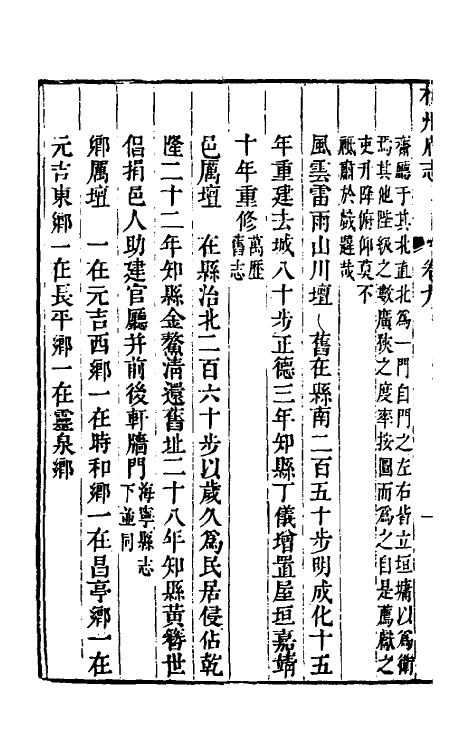 杭州府志 卷九
齋廳于其北直北爲一門自門之左右皆立垣墉以爲衛
焉其他陛級之數廣狹之度率按圖而爲之自是薦獻之
吏升降俯仰莫不
祗肅於歲選哉
風雲雷雨山川壇 舊在縣南二百五十步明成化十五
年重建去城八十步正德三年知縣丁儀增置屋垣嘉靖
十年重修萬歷舊志
邑厲壇 在縣治北二百六十步以歲久爲民居侵佔乾
隆二十二年知縣金鰲清還舊址二十八年知縣黃簪世
倡捐邑人助建官廳并前後軒牆門海寧縣志下並同
鄉厲壇 一在元吉西鄉一在時和鄉一在昌亭鄉一在
元吉東鄉一在長平鄉一在靈泉鄉